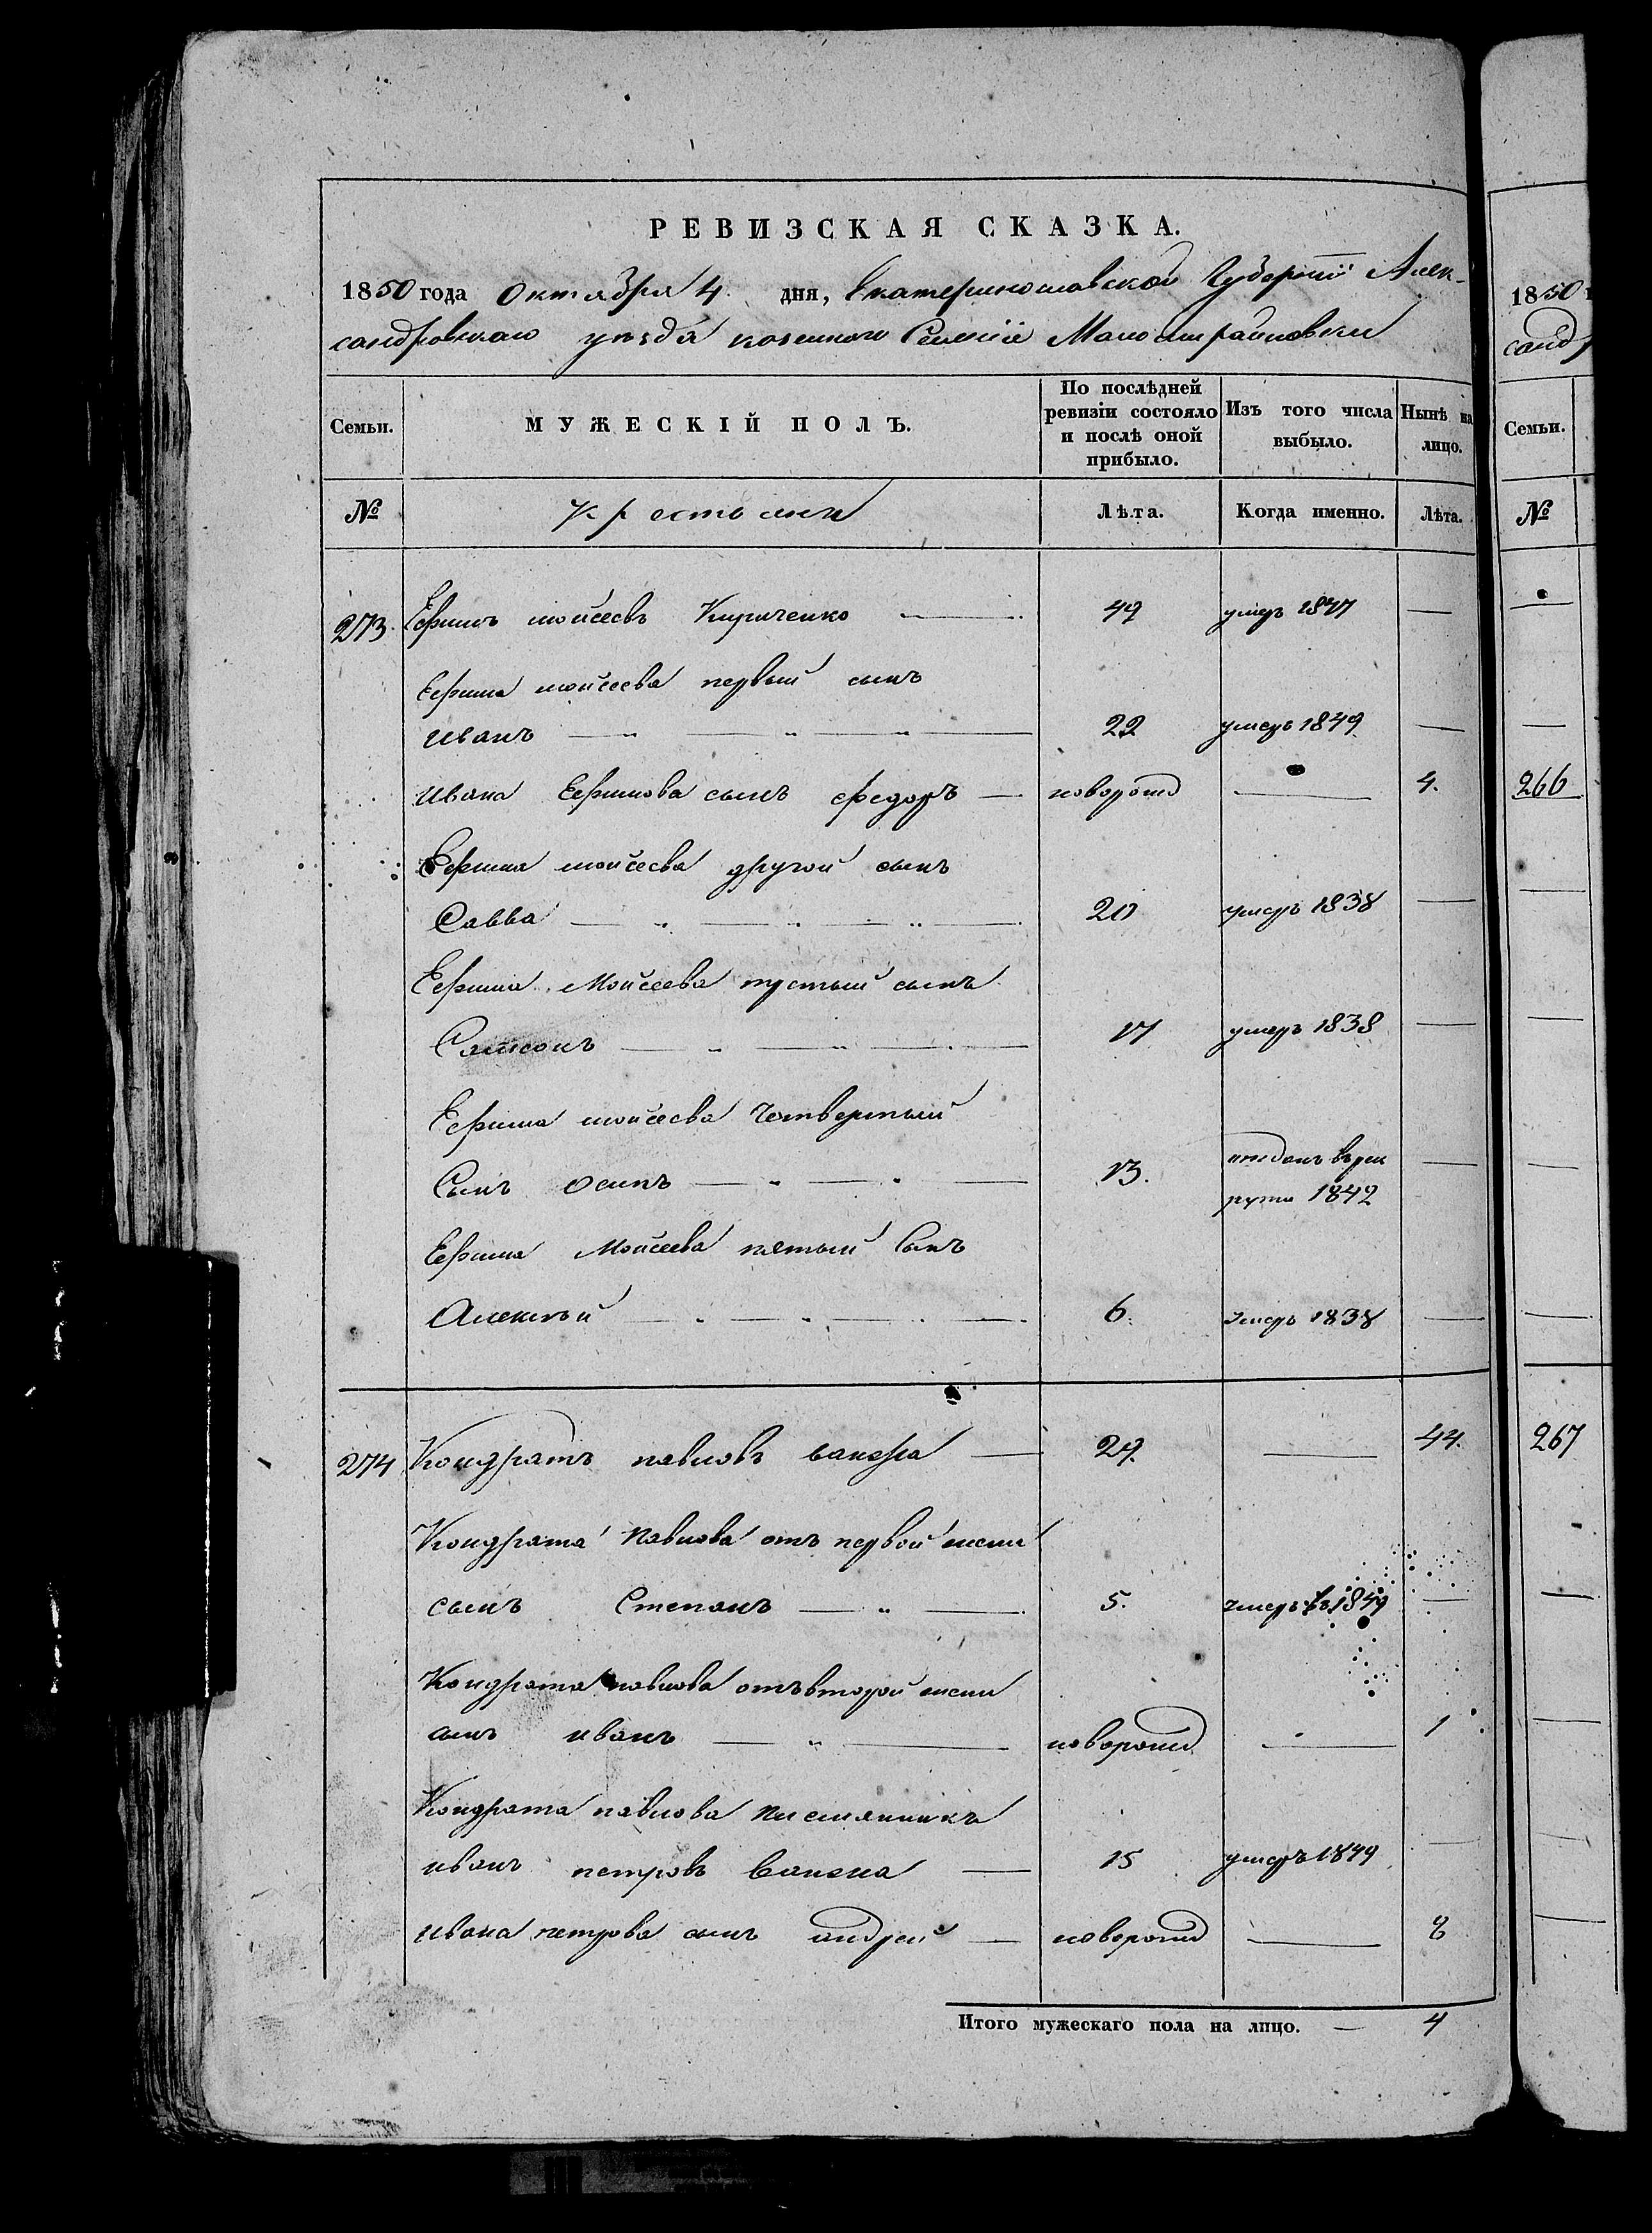 РЕВИЗСКАЯ СКАЗКА.
1850 года Октября 4 дня, Екатеринославской Губернiи Алек-
сандровскаго уѣзда казеннаго Селенiя
Семьи. МУЖЕСКІЙ ПОЛЪ. По послѣдней ревизіи состояло и послѣ оной прибыло. Изъ того числа выбыло. Нынѣ на лицо.
№ Крестьяни Лѣта. Когда именно. Лѣта.
273. Ефимъ моисеевъ Кириченко — 49 умеръ 1847 —
Ефима моисеева первый сынъ
иванъ — 22 умеръ 1849 —
ивана Ефимова сынъ федоръ — новорожд — 4.
Ефима моисеева другой сынъ
Савва — 20 умеръ 1838 —
Ефима Моисеева третый сынъ
Самсонъ — 17 умеръ 1838 —
Ефима моисеева Четвертый
Сынъ осипъ — 13. отданъ въ рек
руты 1842 —
Ефима Моисеева пятый Сынъ
Алексѣй — 6. умеръ 1838 —
274 Кондратъ павловъ — 29. — 44.
Кондрата Павлова отъ первой жены
сынъ Степанъ — 5. умеръ въ 1849 —
Кондрата павлова отъ второй жены
сынъ иванъ — новорожд — 1
Кондрата павлова племянникъ
иванъ петровъ — 15 умеръ 1849 —
ивана петрова сынъ андрей — новорожд — 8
Итого мужескаго пола на лицо. — 4
1850
санд
Семьи.
№
266
267